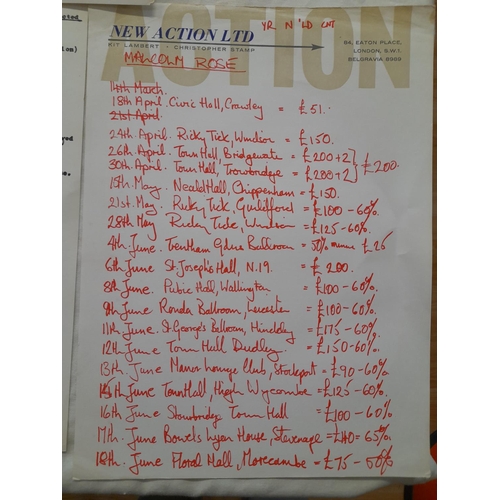 ected
ion)
yed
e.
ACTION
YR N 'LD CNT
NEW ACTION LTD
KIT LAMBERT · CHRISTOPHER STAMP
84, EATON PLACE,
LONDON, S.W.1.
BELGRAVIA 8989
MALCOLM ROSE
14th March.
18th April. Civic Hall, Crawley = £51.
21st April.
24th April. Ricky Tick, Windsor = £150.
26th April. Town Hall, Bridgewater = £200+2
30th April. Town Hall, Trowbridge = £200+2 } £200.
15th May. Neald Hall, Chippenham = £150.
21st May. Ricky Tick, Guildford = £100-60%.
28th May Ricky Tick, Windsor = £125-60%.
4th June. Trentham Gdns Ballroom = 50% minus £25
6th June St. Joseph's Hall, N.19. = £200.
8th June. Public Hall, Wallington = £100-60%
9th June Ronda Ballroom, Leicester = £100-60%.
11th June. St. George's Ballroom, Hinckley = £175-60%
12th June Town Hall Dudley. = £150-60%.
13th June Manor Lounge Club, Stockport = £90-60%
15th June Town Hall, High Wycombe = £125-60%.
16th June Stourbridge Town Hall = £100-60%
17th. June Bowes Lyon House, Stevenage = £140 = 65%.
18th. June Floral Hall, Morecambe = £75-60%